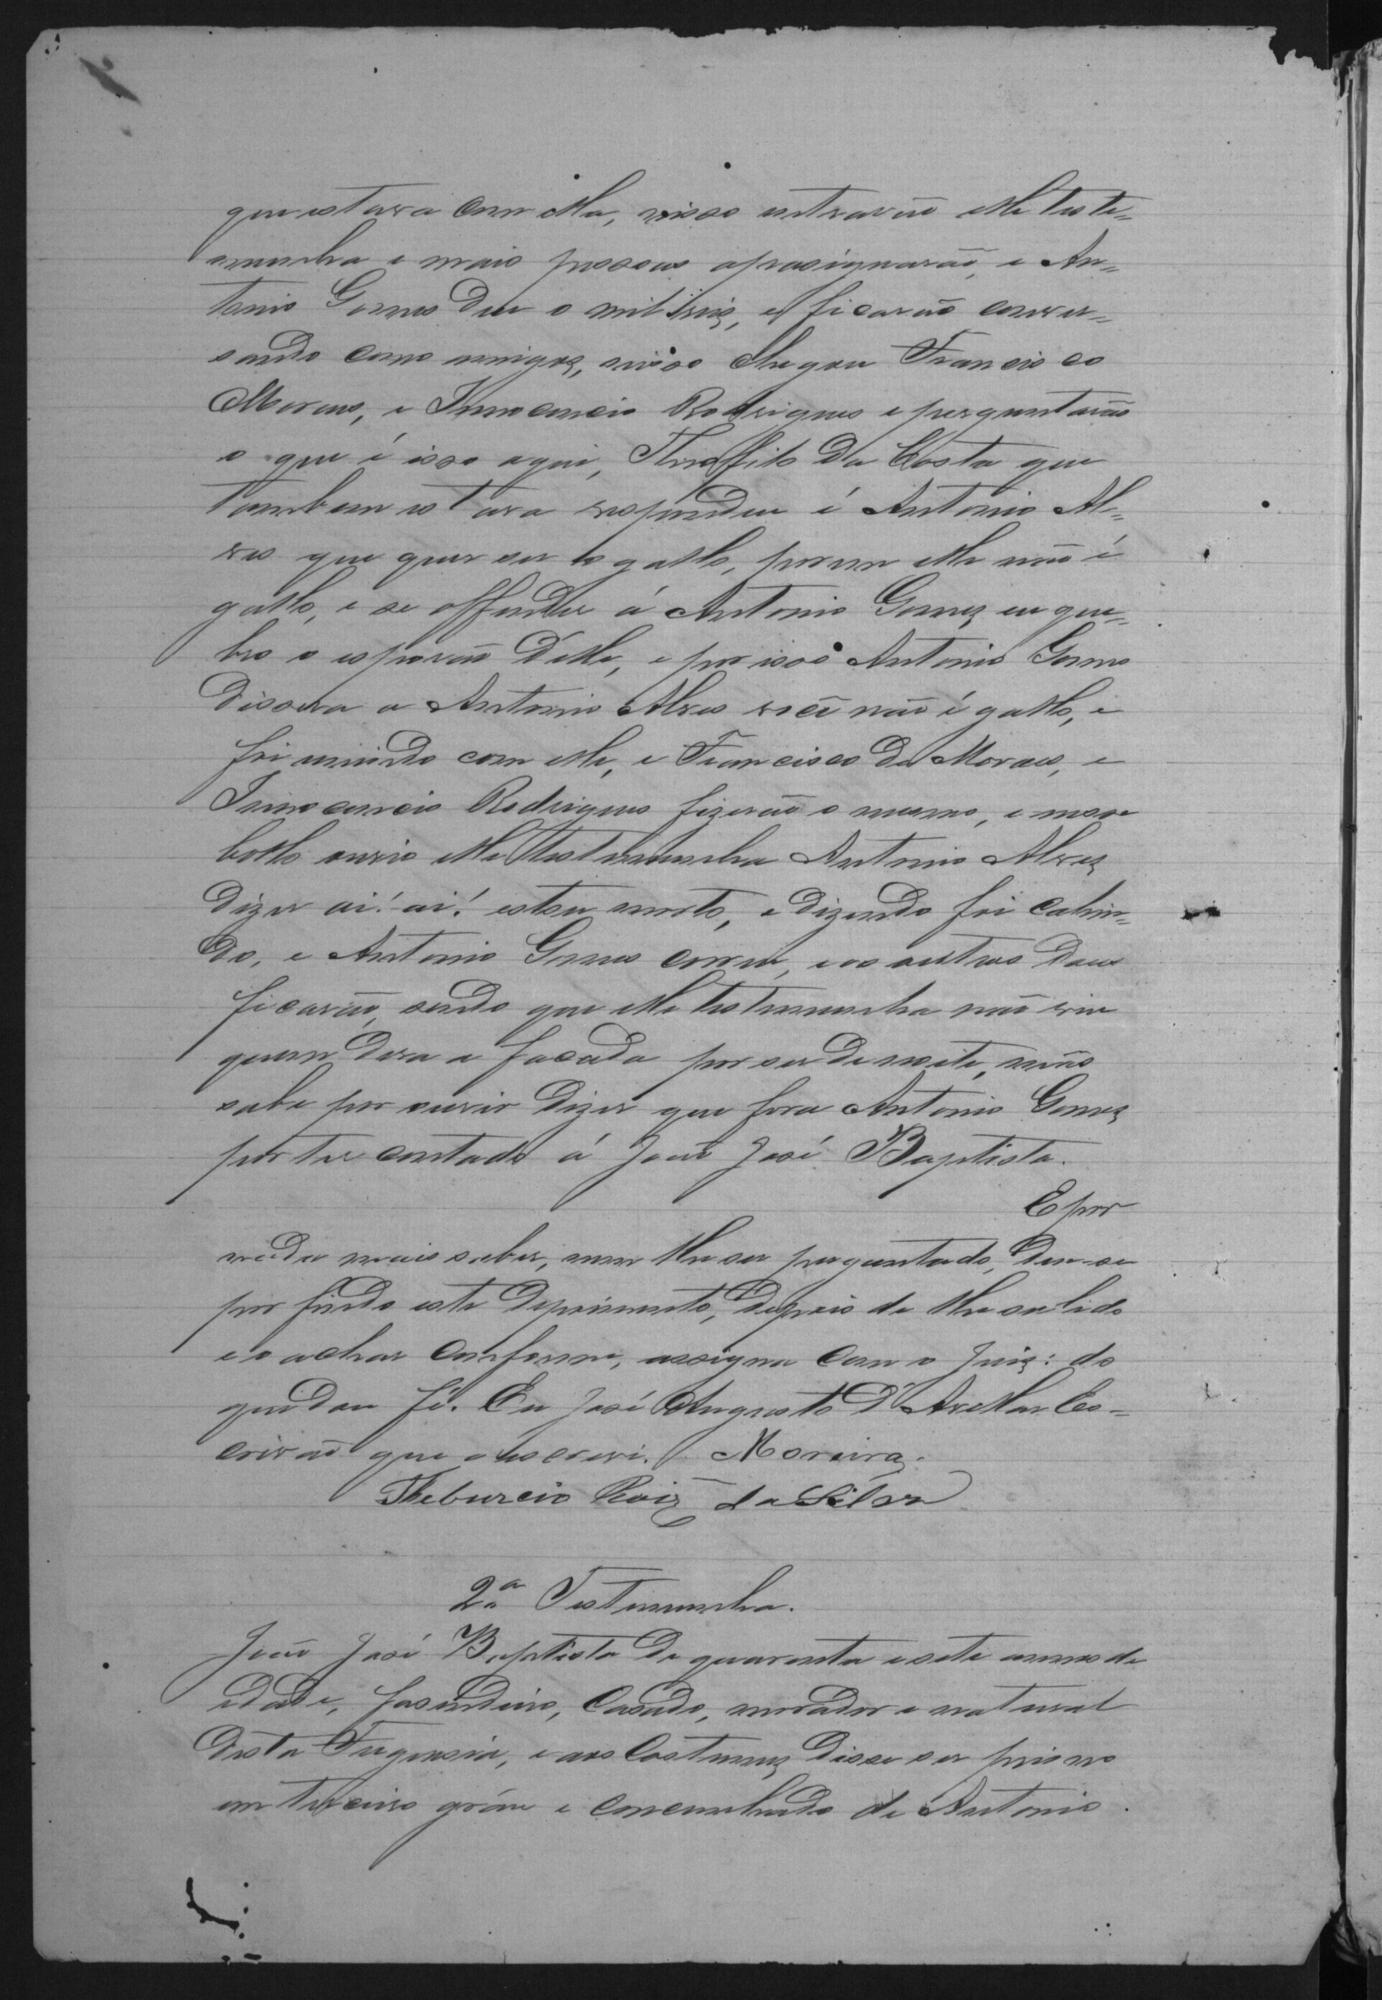 que estava com elle, nisso entrarão elle teste=
munha e mais pessoas apasiguarão, e An=
tonio Gomes deu o mil reis, e ficarão conver=
sando como amigos, nisso chegou Francisco
Moraes, e Innocencio Rodrigues e perguntarão
o que é isso aqui, Theofilo da Costa que
tambem estava respondeu é Antonio Al=
ves que quer ser o gallo, porem elle não é
gallo, e se offender á Antonio Gomes eu que=
bro o esporão d'elle, e por isso Antonio Gomes
dissera a Antonio Alves você não é gallo, e
foi unindo com elle, e Francisco de Moraes, e
Innocencio Rodrigues fizerão o mesmo, e
bollo ouvio elle testemunha Antonio Alves
dizer ai! ai! estou morto, e dizendo foi cahin=
do, e Antonio Gomes correu, e os outros dous
ficarão, sendo que elle testemunha não viu
quem dera a facada por ser de noite, mas
sabe por ouvir dizer que fora Antonio Gomes
por ter contado á João José Baptista.
E por
nada mais saber, nem lhe ser perguntado, deu-se
por findo este depoimento, depois de lhe ser lido
e o achar conforme, assigna com o Juiz: do
que dou fé. Eu José Augusto d'Avellar Es=
crivão que o escrevi. Moreira.
Theburcio Roiz da Silva
2ª Testemunha.
João José Baptista de quarenta e sete annos de
idade, fasendeiro, casado, morador e natural
desta Freguesia, e aos costumes disse ser primo
em terceiro gráu e concunhado de Antonio